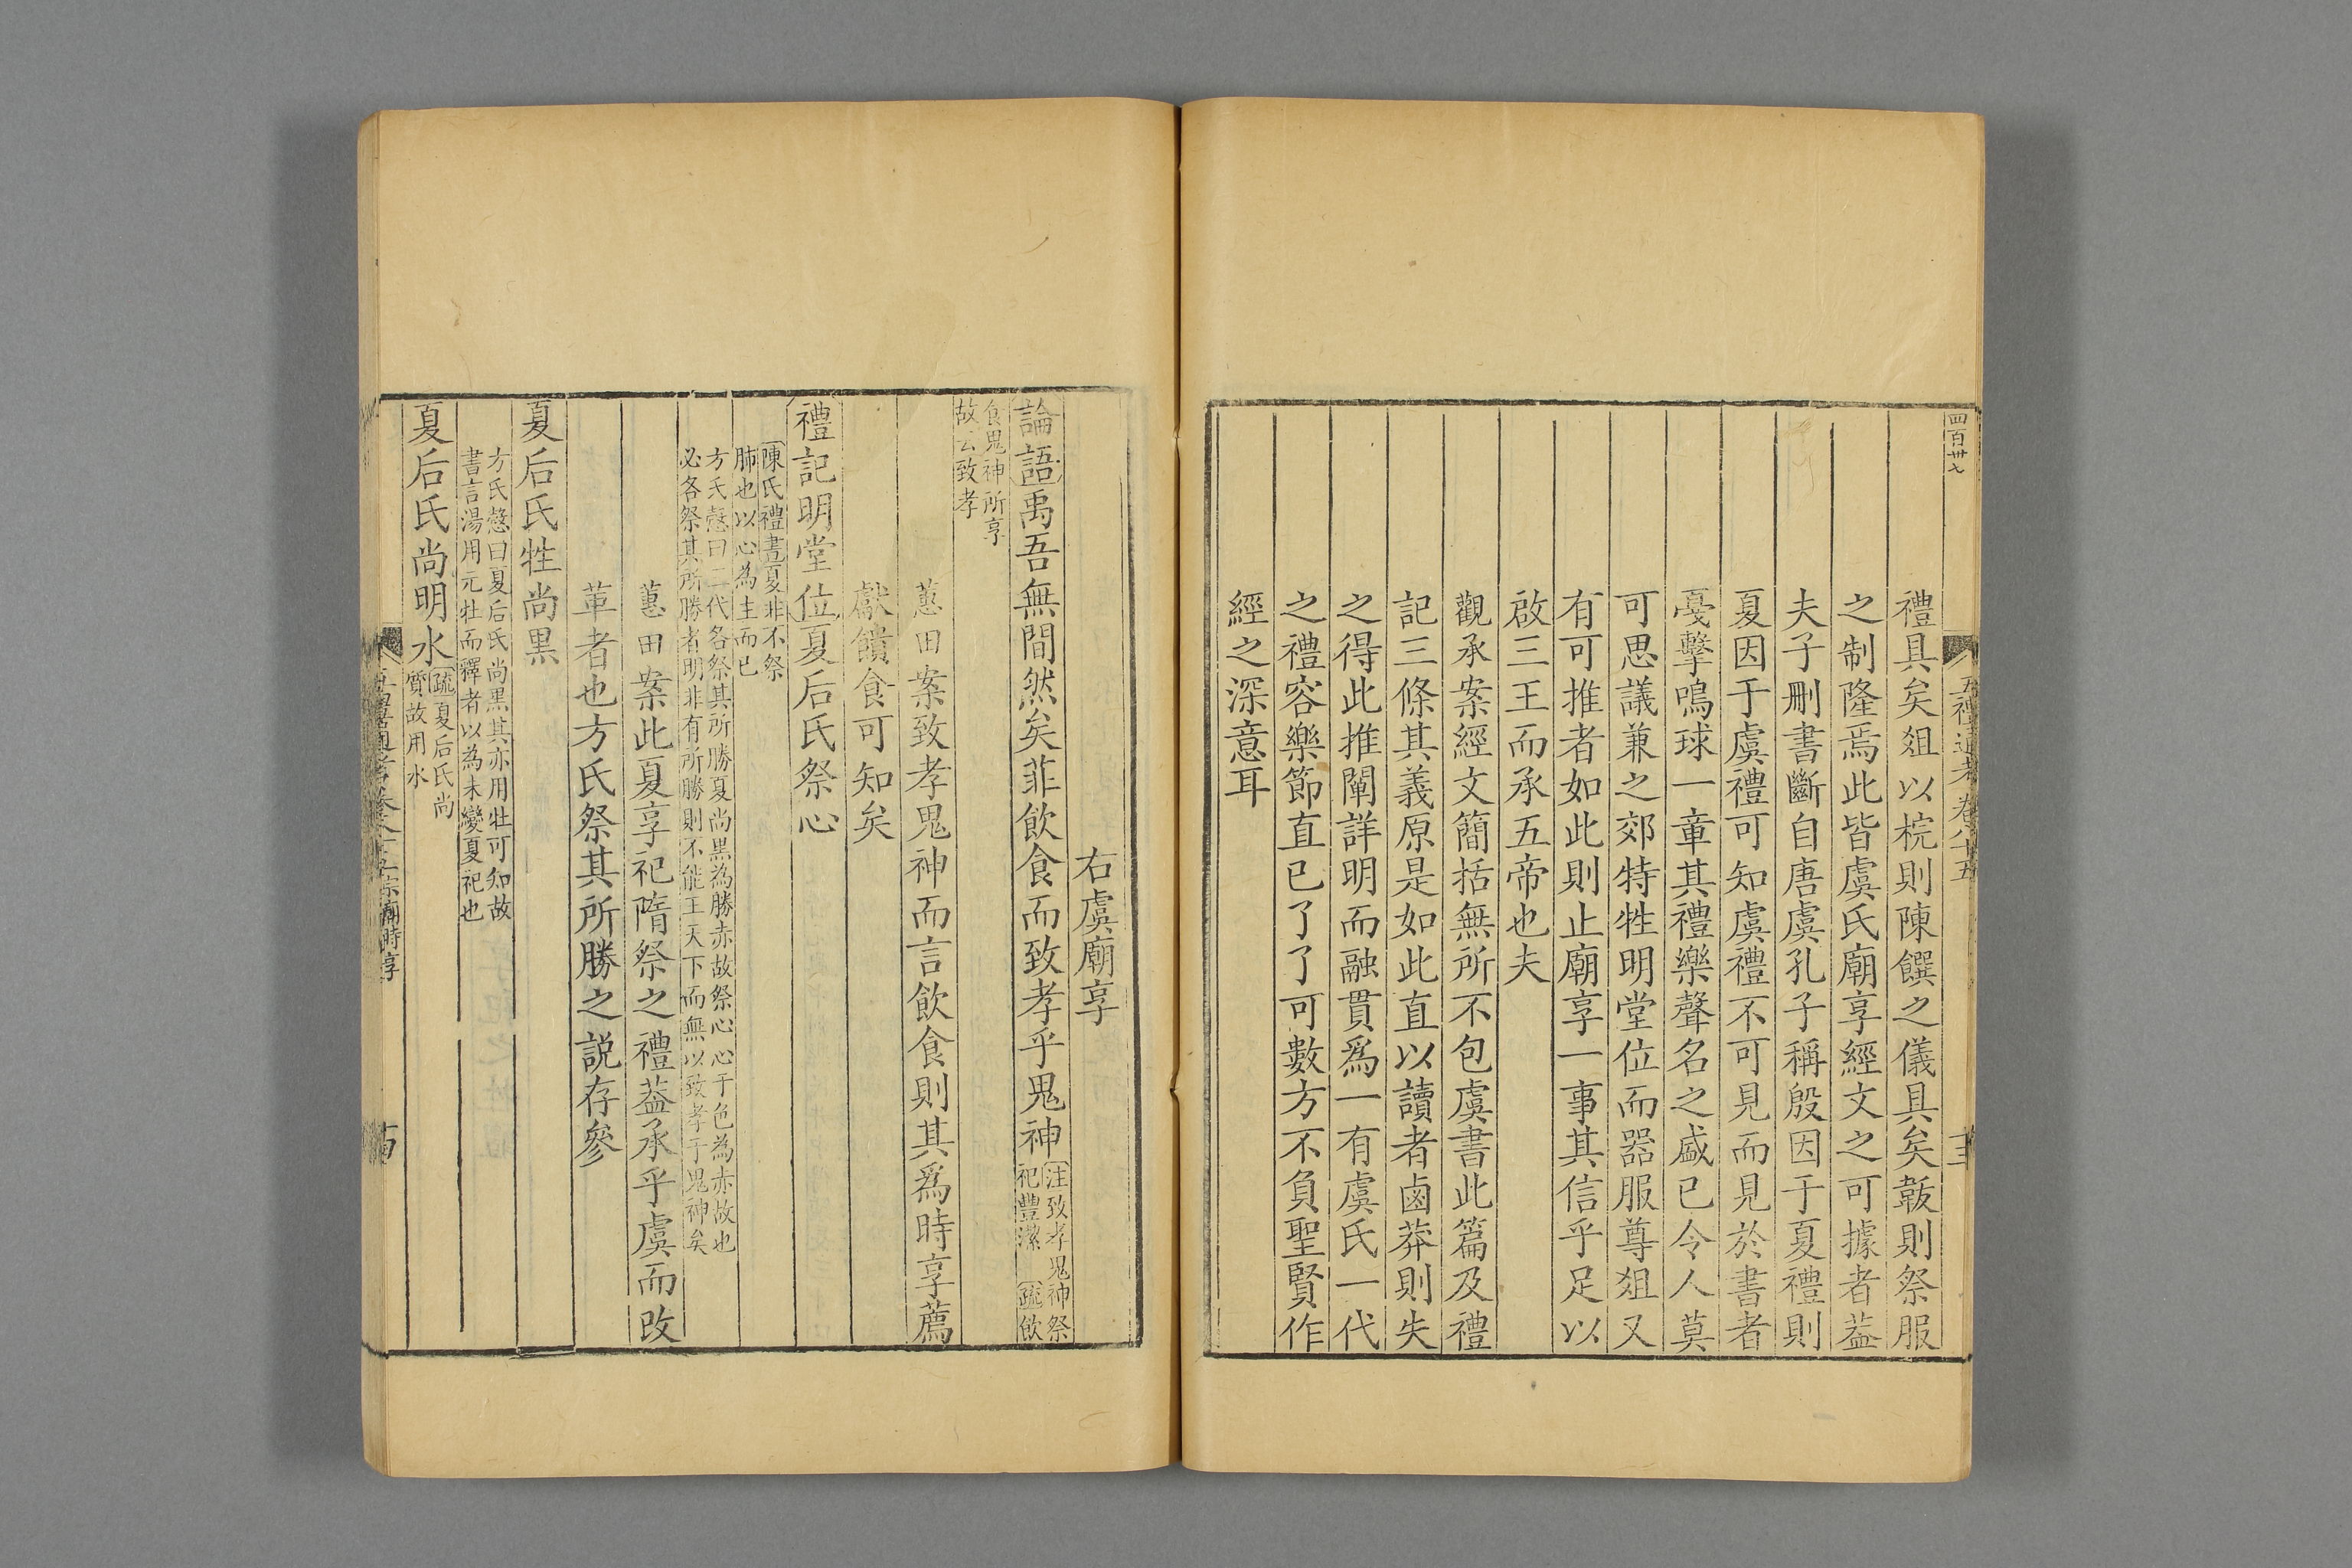 四百卅七
五禮通考卷八十五
十三
禮具矣俎以梡則陳饌之儀具矣韍則祭服
之制隆焉此皆虞氏廟享經文之可據者葢
夫子刪書斷自唐虞孔子稱殷因于夏禮則
夏因于虞禮可知虞禮不可見而見於書者
戞擊鳴球一章其禮樂聲名之盛已令人莫
可思議兼之郊特牲明堂位而器服尊俎又
有可推者如此則止廟享一事其信乎足以
啟三王而承五帝也夫
觀承案經文簡括無所不包虞書此篇及禮
記三條其義原是如此直以讀者鹵莽則失
之得此推闡詳明而融貫爲一有虞氏一代
之禮容樂節直已了了可數方不負聖賢作
經之深意耳
右虞廟享
論語禹吾無間然矣菲飲食而致孝乎鬼神注致孝鬼神祭
祀豐潔 疏飲
食鬼神所享
故云致孝
蕙田案致孝鬼神而言飲食則其爲時享薦
獻饋食可知矣
禮記明堂位夏后氏祭心
陳氏禮書夏非不祭
肺也以心為主而已
方氏慤曰三代各祭其所勝夏尚黑為勝赤故祭心心于色為赤故也
必各祭其所勝者明非有所勝則不能王天下而無以致孝于鬼神矣
蕙田案此夏享祀隋祭之禮葢承乎虞而改
革者也方氏祭其所勝之説存參
夏后氏牲尚黑
方氏慤曰夏后氏尚黑其亦用牡可知故
書言湯用元牡而釋者以為未變夏祀也
夏后氏尚明水疏夏后氏尚
質故用水
五禮通考卷八十五宗廟時享
十四